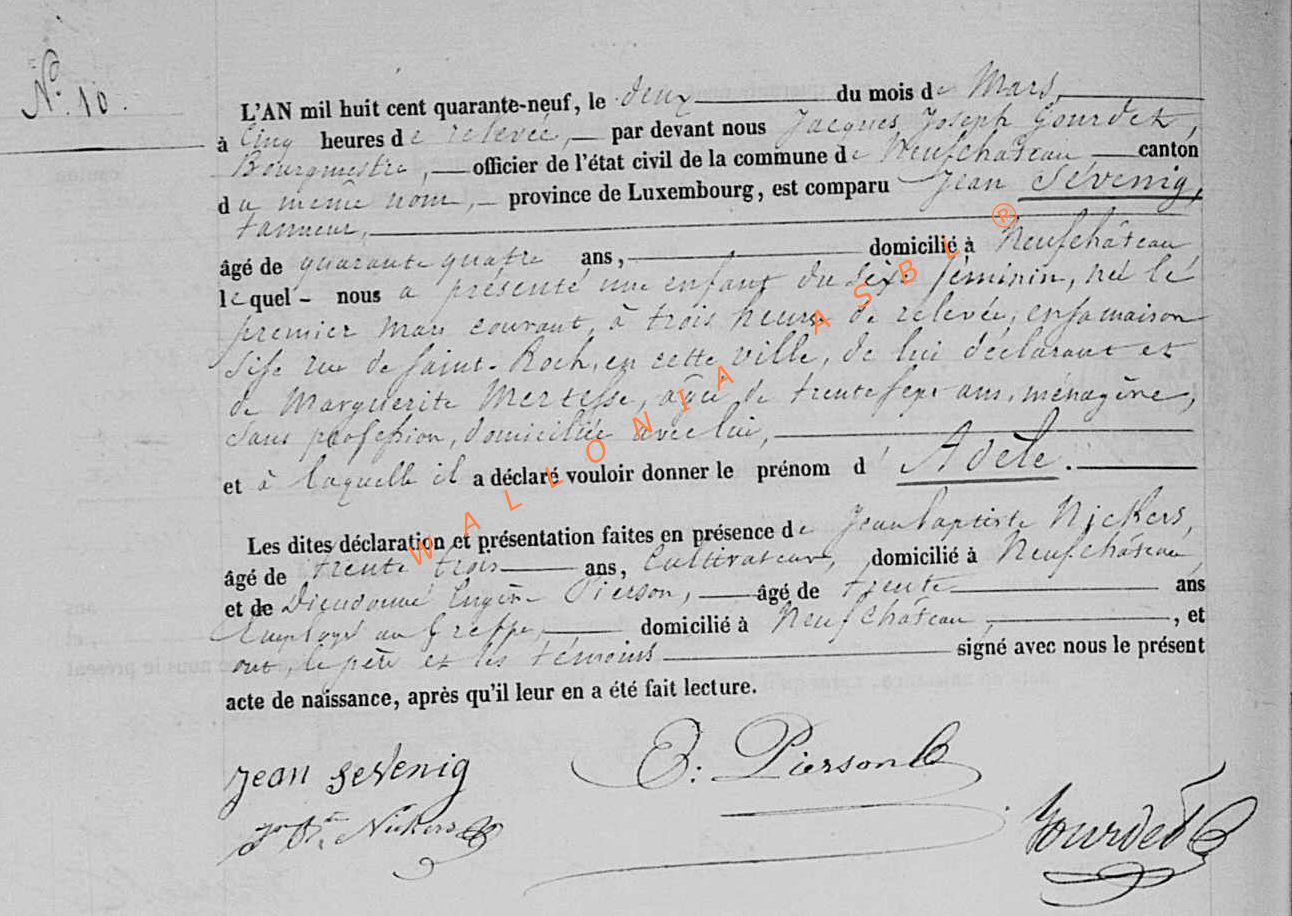 N.° 10.
L'AN mil huit cent quarante-neuf, le deux du mois de Mars,
à Cinq heures de relevée, par devant nous Jacques Joseph Gourdet,
Bourgmestre, officier de l'état civil de la commune de Neufchâteau, canton
du même nom, province de Luxembourg, est comparu Jean Sevenig,
tanneur,
âgé de quarante quatre ans, domicilié à Neufchâteau
lequel nous a présenté une enfant du sexe féminin, né le
premier Mars courant, à trois heures de relevée, en sa maison
sise rue de Saint-Roch, en cette ville, de lui déclarant et
de Marguerite Mertesse, agée de trente sept ans, ménagère,
sans profession, domiciliée avec lui,
et à laquelle il a déclaré vouloir donner le prénom d'Adèle.
Les dites déclaration et présentation faites en présence de Jean baptiste Nickers,
âgé de trente trois ans, Cultivateur, domicilié à Neufchâteau
et de Dieudonné Eugène Pierson, âgé de trente ans
Employé au Greffe, domicilié à Neufchâteau, , et
ont, le père et les témoins signé avec nous le présent
acte de naissance, après qu'il leur en a été fait lecture.
Jean Sevenig
E: Pierson
Jn Bte Nickers
Gourdet
WALLONIA ASBL ®